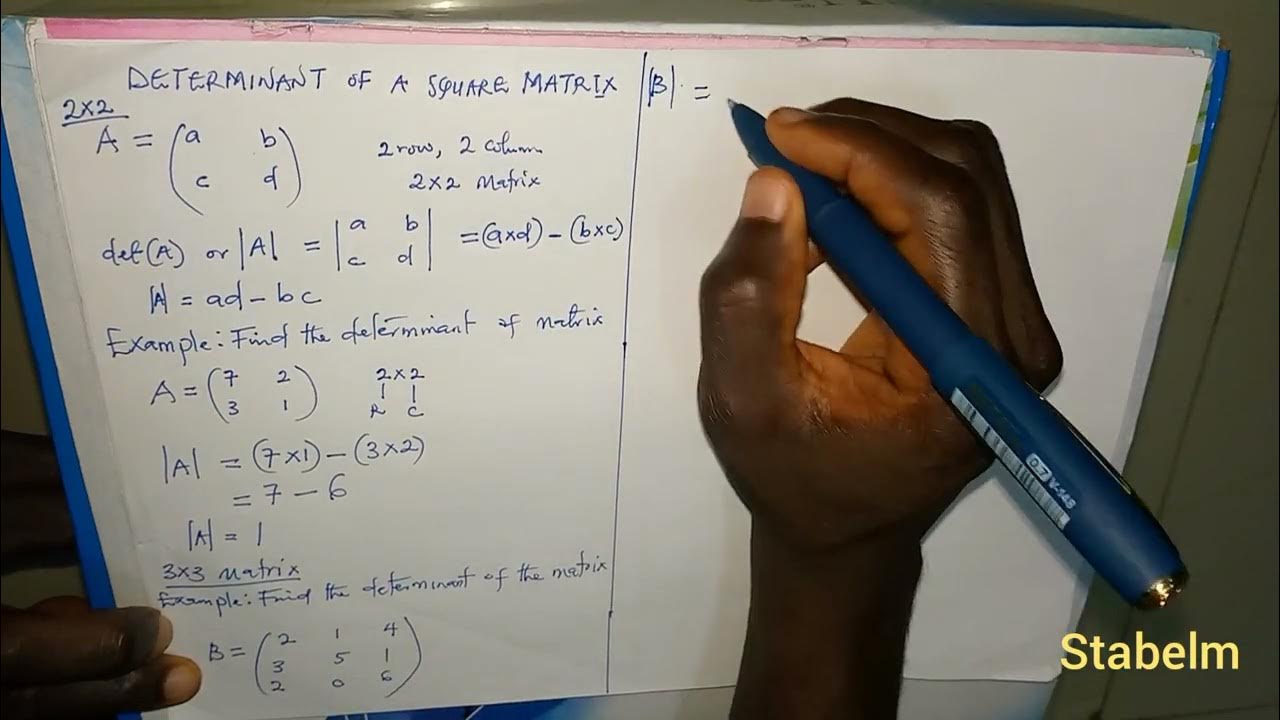 DETERMINANT OF A SQUARE MATRIX
2x2
A = (a b
c d)
2 row, 2 column
2x2 Matrix
det(A) or |A| = |a b
c d| = (axd) - (bxc)
|A| = ad - bc
Example: Find the determinant of matrix
A = (7 2
3 1)
2x2
R C
|A| = (7x1) - (3x2)
= 7 - 6
|A| = 1
3x3 Matrix
Example: Find the determinant of the matrix
B = (2 1 4
3 5 1
2 0 6)
|B| =
0.7 V-148
Stabelm